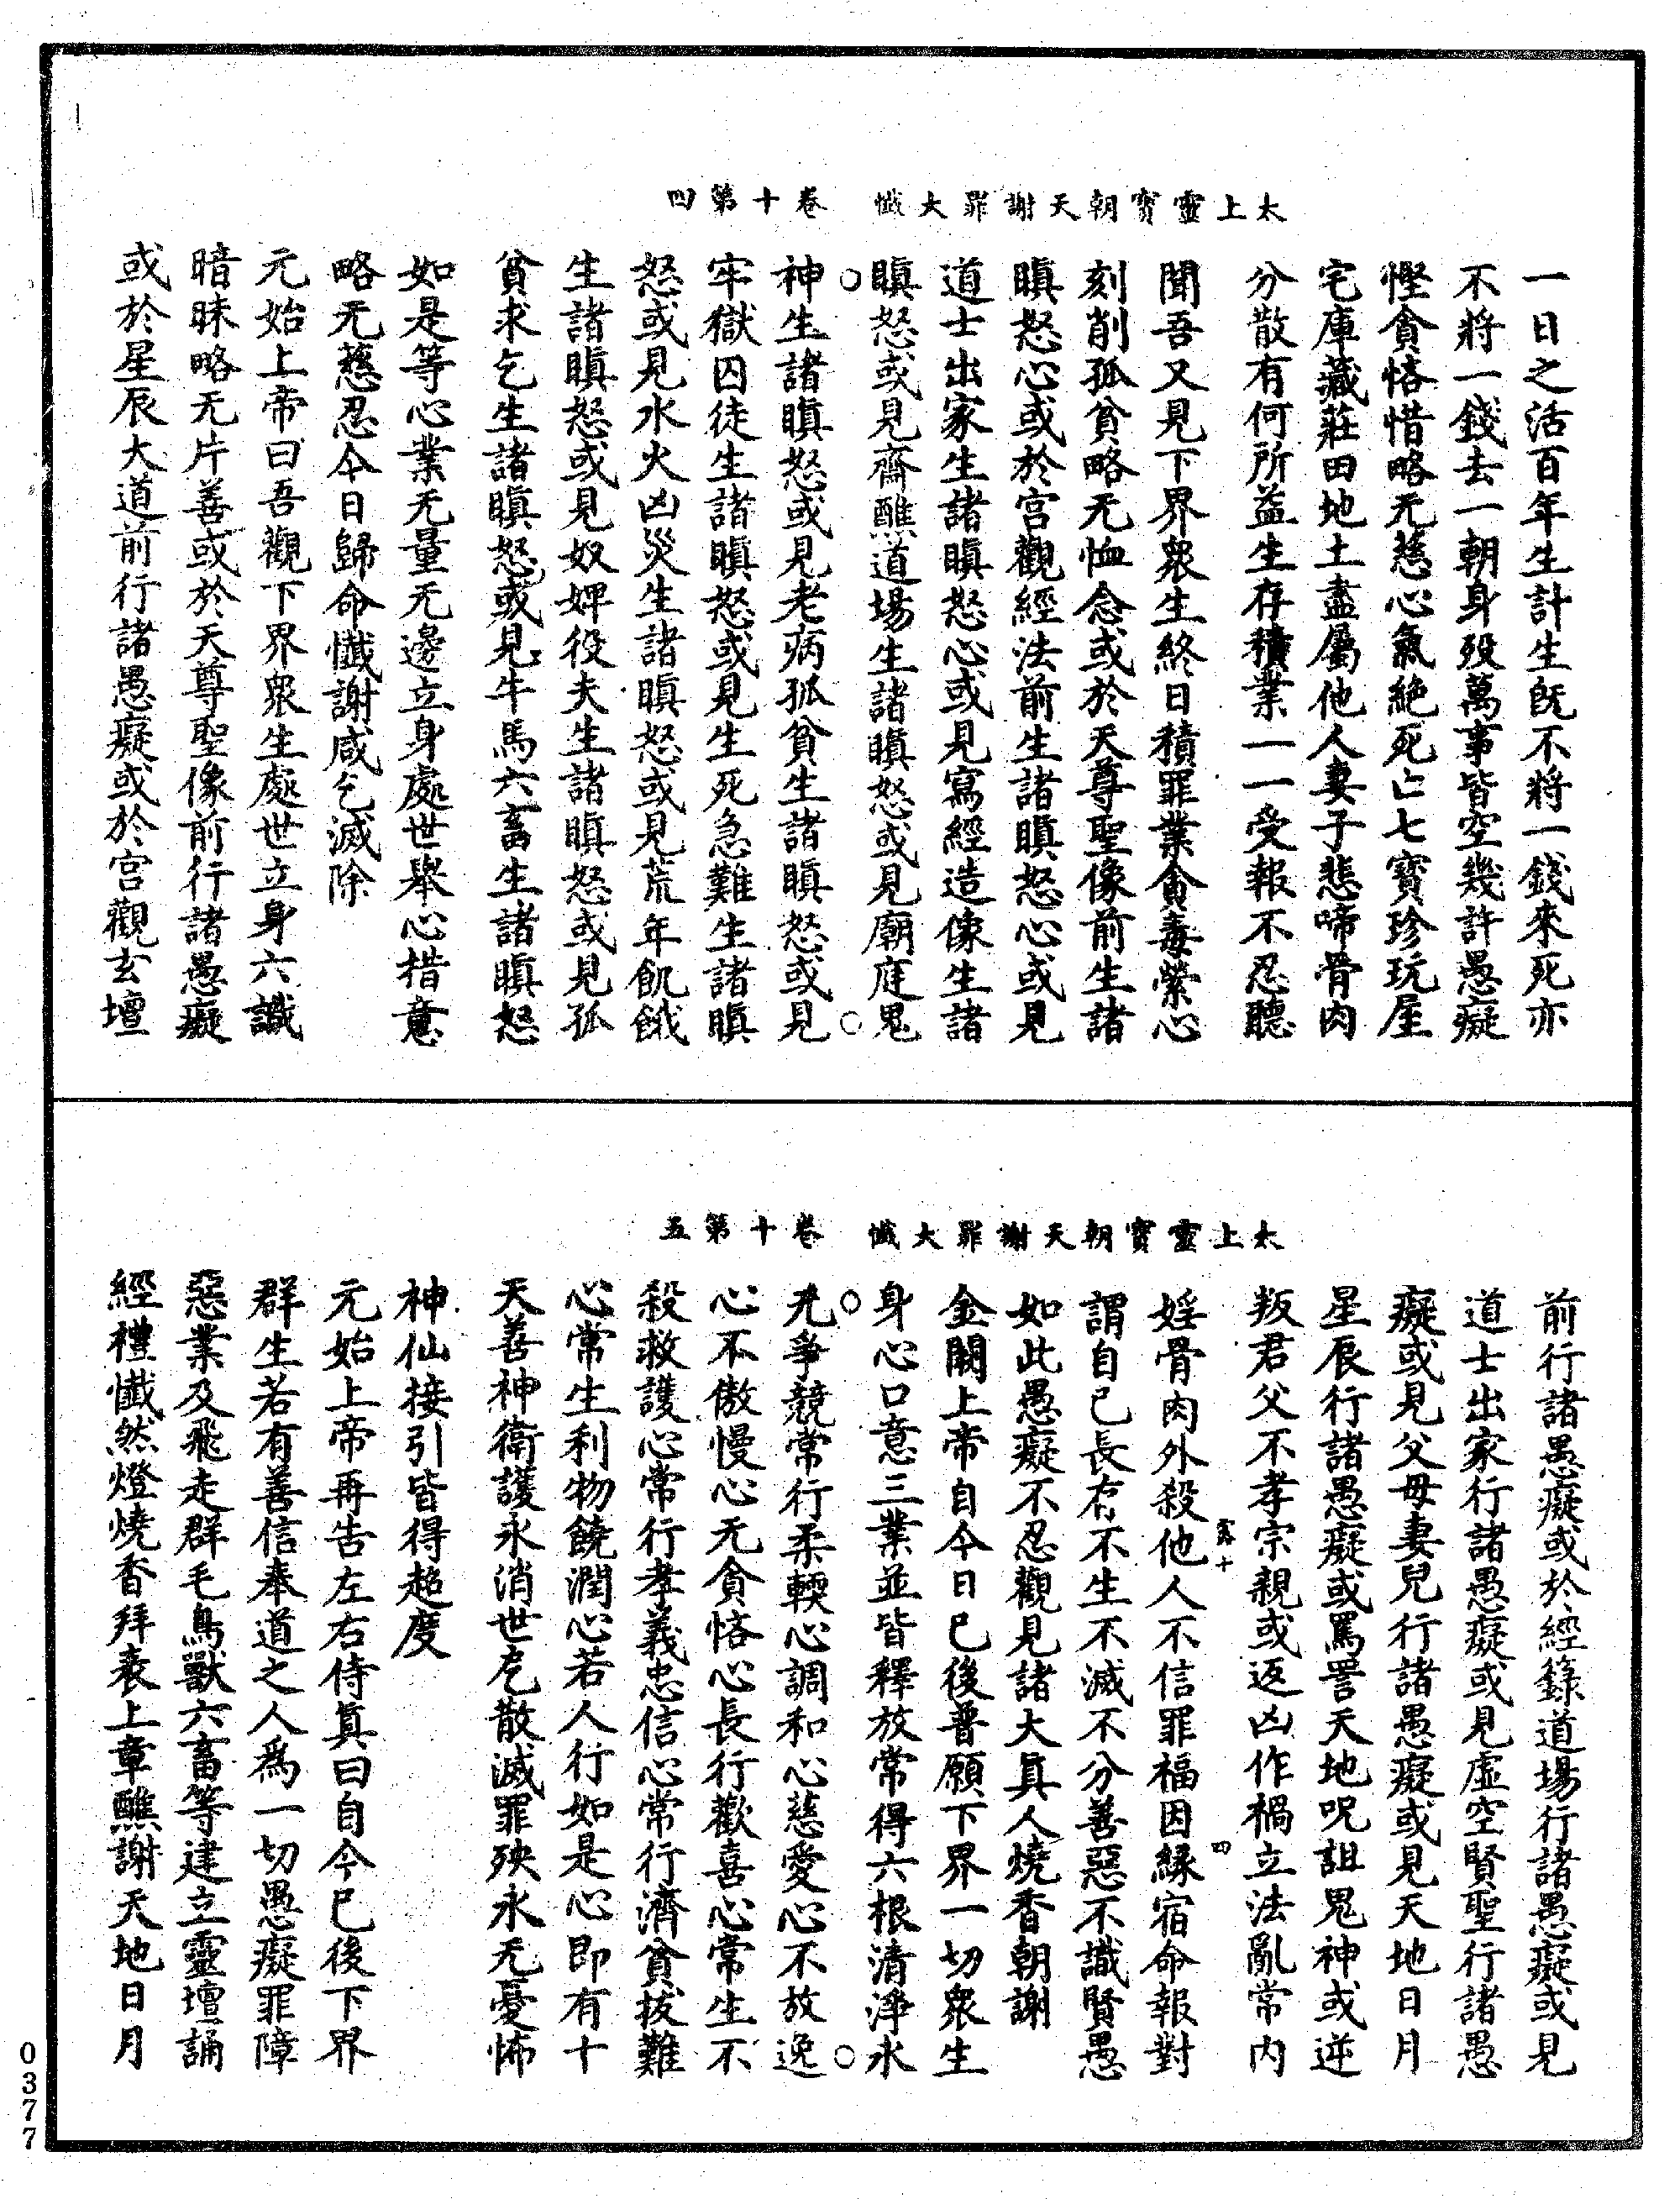 太上靈寶朝天謝罪大懺　卷十第四
一日之活百年生計生旣不將一錢來死亦
不將一錢去一朝身殁萬事皆空幾許愚癡
慳貪悋惜略无慈心氣絶死亡七寶珍玩屋
宅庫藏莊田地土盡屬他人妻子悲啼骨肉
分散有何所益生存積業一一受報不忍聽
聞吾又見下界衆生終日積罪業貪毒縈心
刻削孤貧略无恤念或於天尊聖像前生諸
瞋怒心或於宫觀經法前生諸瞋怒心或見
道士出家生諸瞋怒心或見寫經造像生諸
瞋怒或見齋醮道場生諸瞋怒或見廟庭鬼
神生諸瞋怒或見老病孤貧生諸瞋怒或見
牢獄囚徒生諸瞋怒或見生死急難生諸瞋
怒或見水火凶災生諸瞋怒或見荒年飢餓
生諸瞋怒或見奴婢役夫生諸瞋怒或見孤
貧求乞生諸瞋怒或見牛馬六畜生諸瞋怒
如是等心業无量无邊立身處世舉心措意
略无慈忍今日歸命懺謝咸乞滅除
元始上帝曰吾觀下界衆生處世立身六識
暗昧略无片善或於天尊聖像前行諸愚癡
或於星辰大道前行諸愚癡或於宫觀玄壇
太上靈寶朝天謝罪大懺　卷十第五
前行諸愚癡或於經籙道場行諸愚癡或見
道士出家行諸愚癡或見虛空賢聖行諸愚
癡或見父母妻兒行諸愚癡或見天地日月
星辰行諸愚癡或罵詈天地呪詛鬼神或逆
叛君父不孝宗親或返凶作禍立法亂常内
婬骨肉外殺他人不信罪福因緣宿命報對
謂自己長存不生不滅不分善惡不識賢愚
如此愚癡不忍觀見諸大眞人燒香朝謝
金闕上帝自今日已後普願下界一切衆生
身心口意三業並皆釋放常得六根清淨永
无爭競常行柔輭心調和心慈愛心不放逸
心不傲慢心无貪悋心長行歡喜心常生不
殺救護心常行孝義忠信心常行濟貧拔難
心常生利物饒潤心若人行如是心即有十
天善神衛護永消世厄散滅罪殃永无憂怖
神仙接引皆得超度
元始上帝再告左右侍眞曰自今已後下界
群生若有善信奉道之人爲一切愚癡罪障
惡業及飛走群毛鳥獸六畜等建立靈壇誦
經禮懺然燈燒香拜表上章醮謝天地日月
四
0377